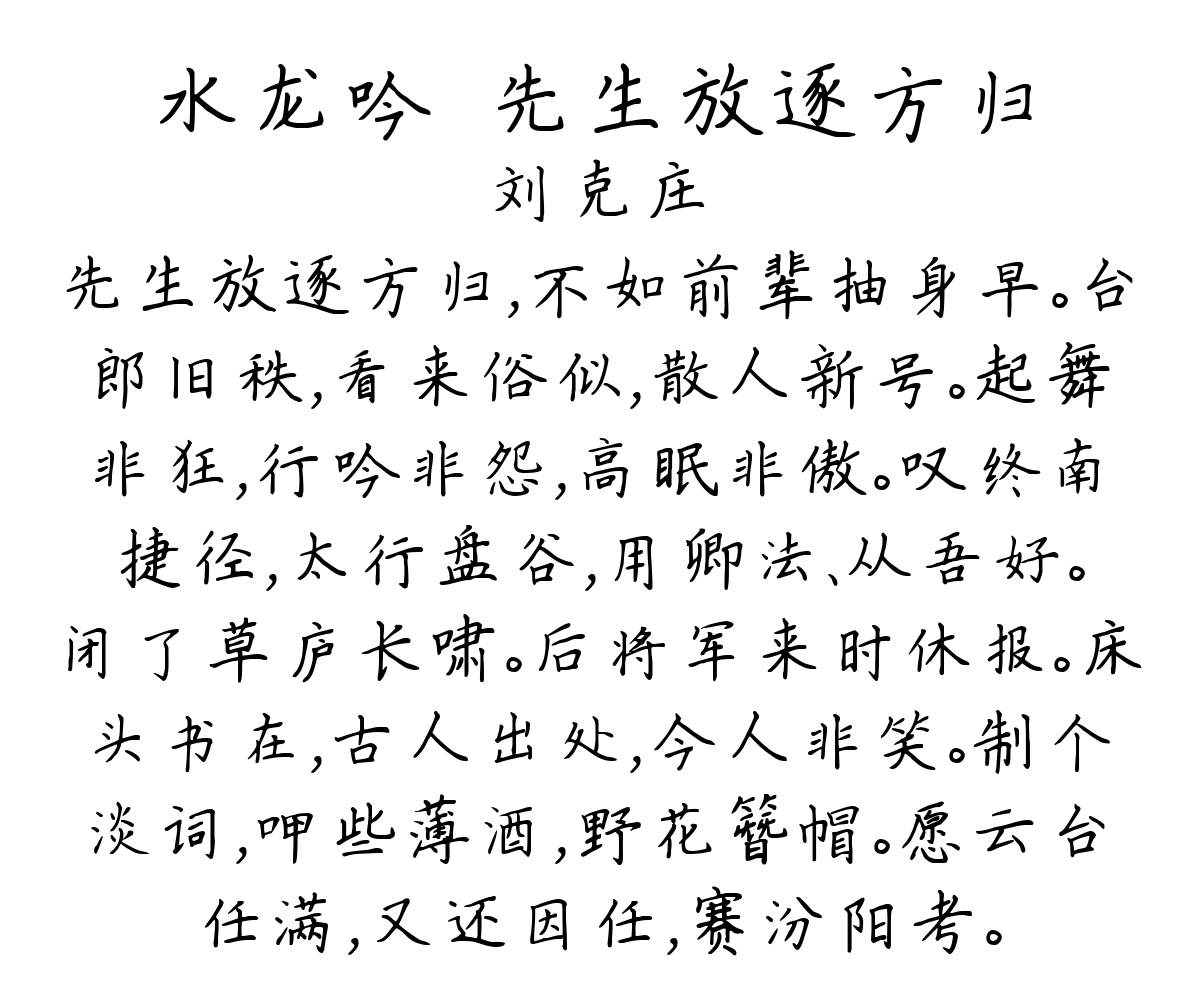 水龙吟 先生放逐方归
刘克庄
先生放逐方归,不如前辈抽身早。台
郎旧秩,看来俗似,散人新号。起舞
非狂,行吟非怨,高眠非傲。叹终南
捷径,太行盘谷,用卿法、从吾好。
闭了草庐长啸。后将军来时休报。床
头书在,古人出处,今人非笑。制个
淡词,呷些薄酒,野花簪帽。愿云台
任满,又还因任,赛汾阳考。